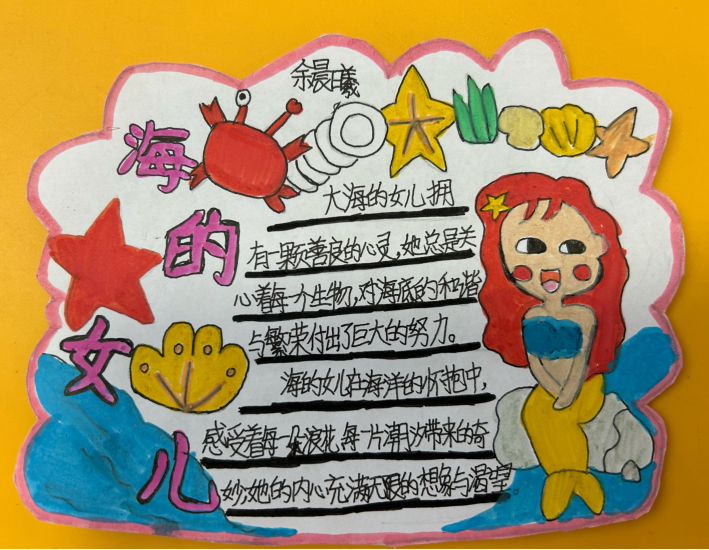 余晨曦
海的女儿
大海的女儿拥
有一颗善良的心灵,她总是关
心着每一个生物,对海底的和谐
与繁荣付出了巨大的努力。
海的女儿在海洋的怀抱中,
感受着每一朵浪花,每一片潮汐带来的奇
妙,她的内心充满无限的想象与渴望